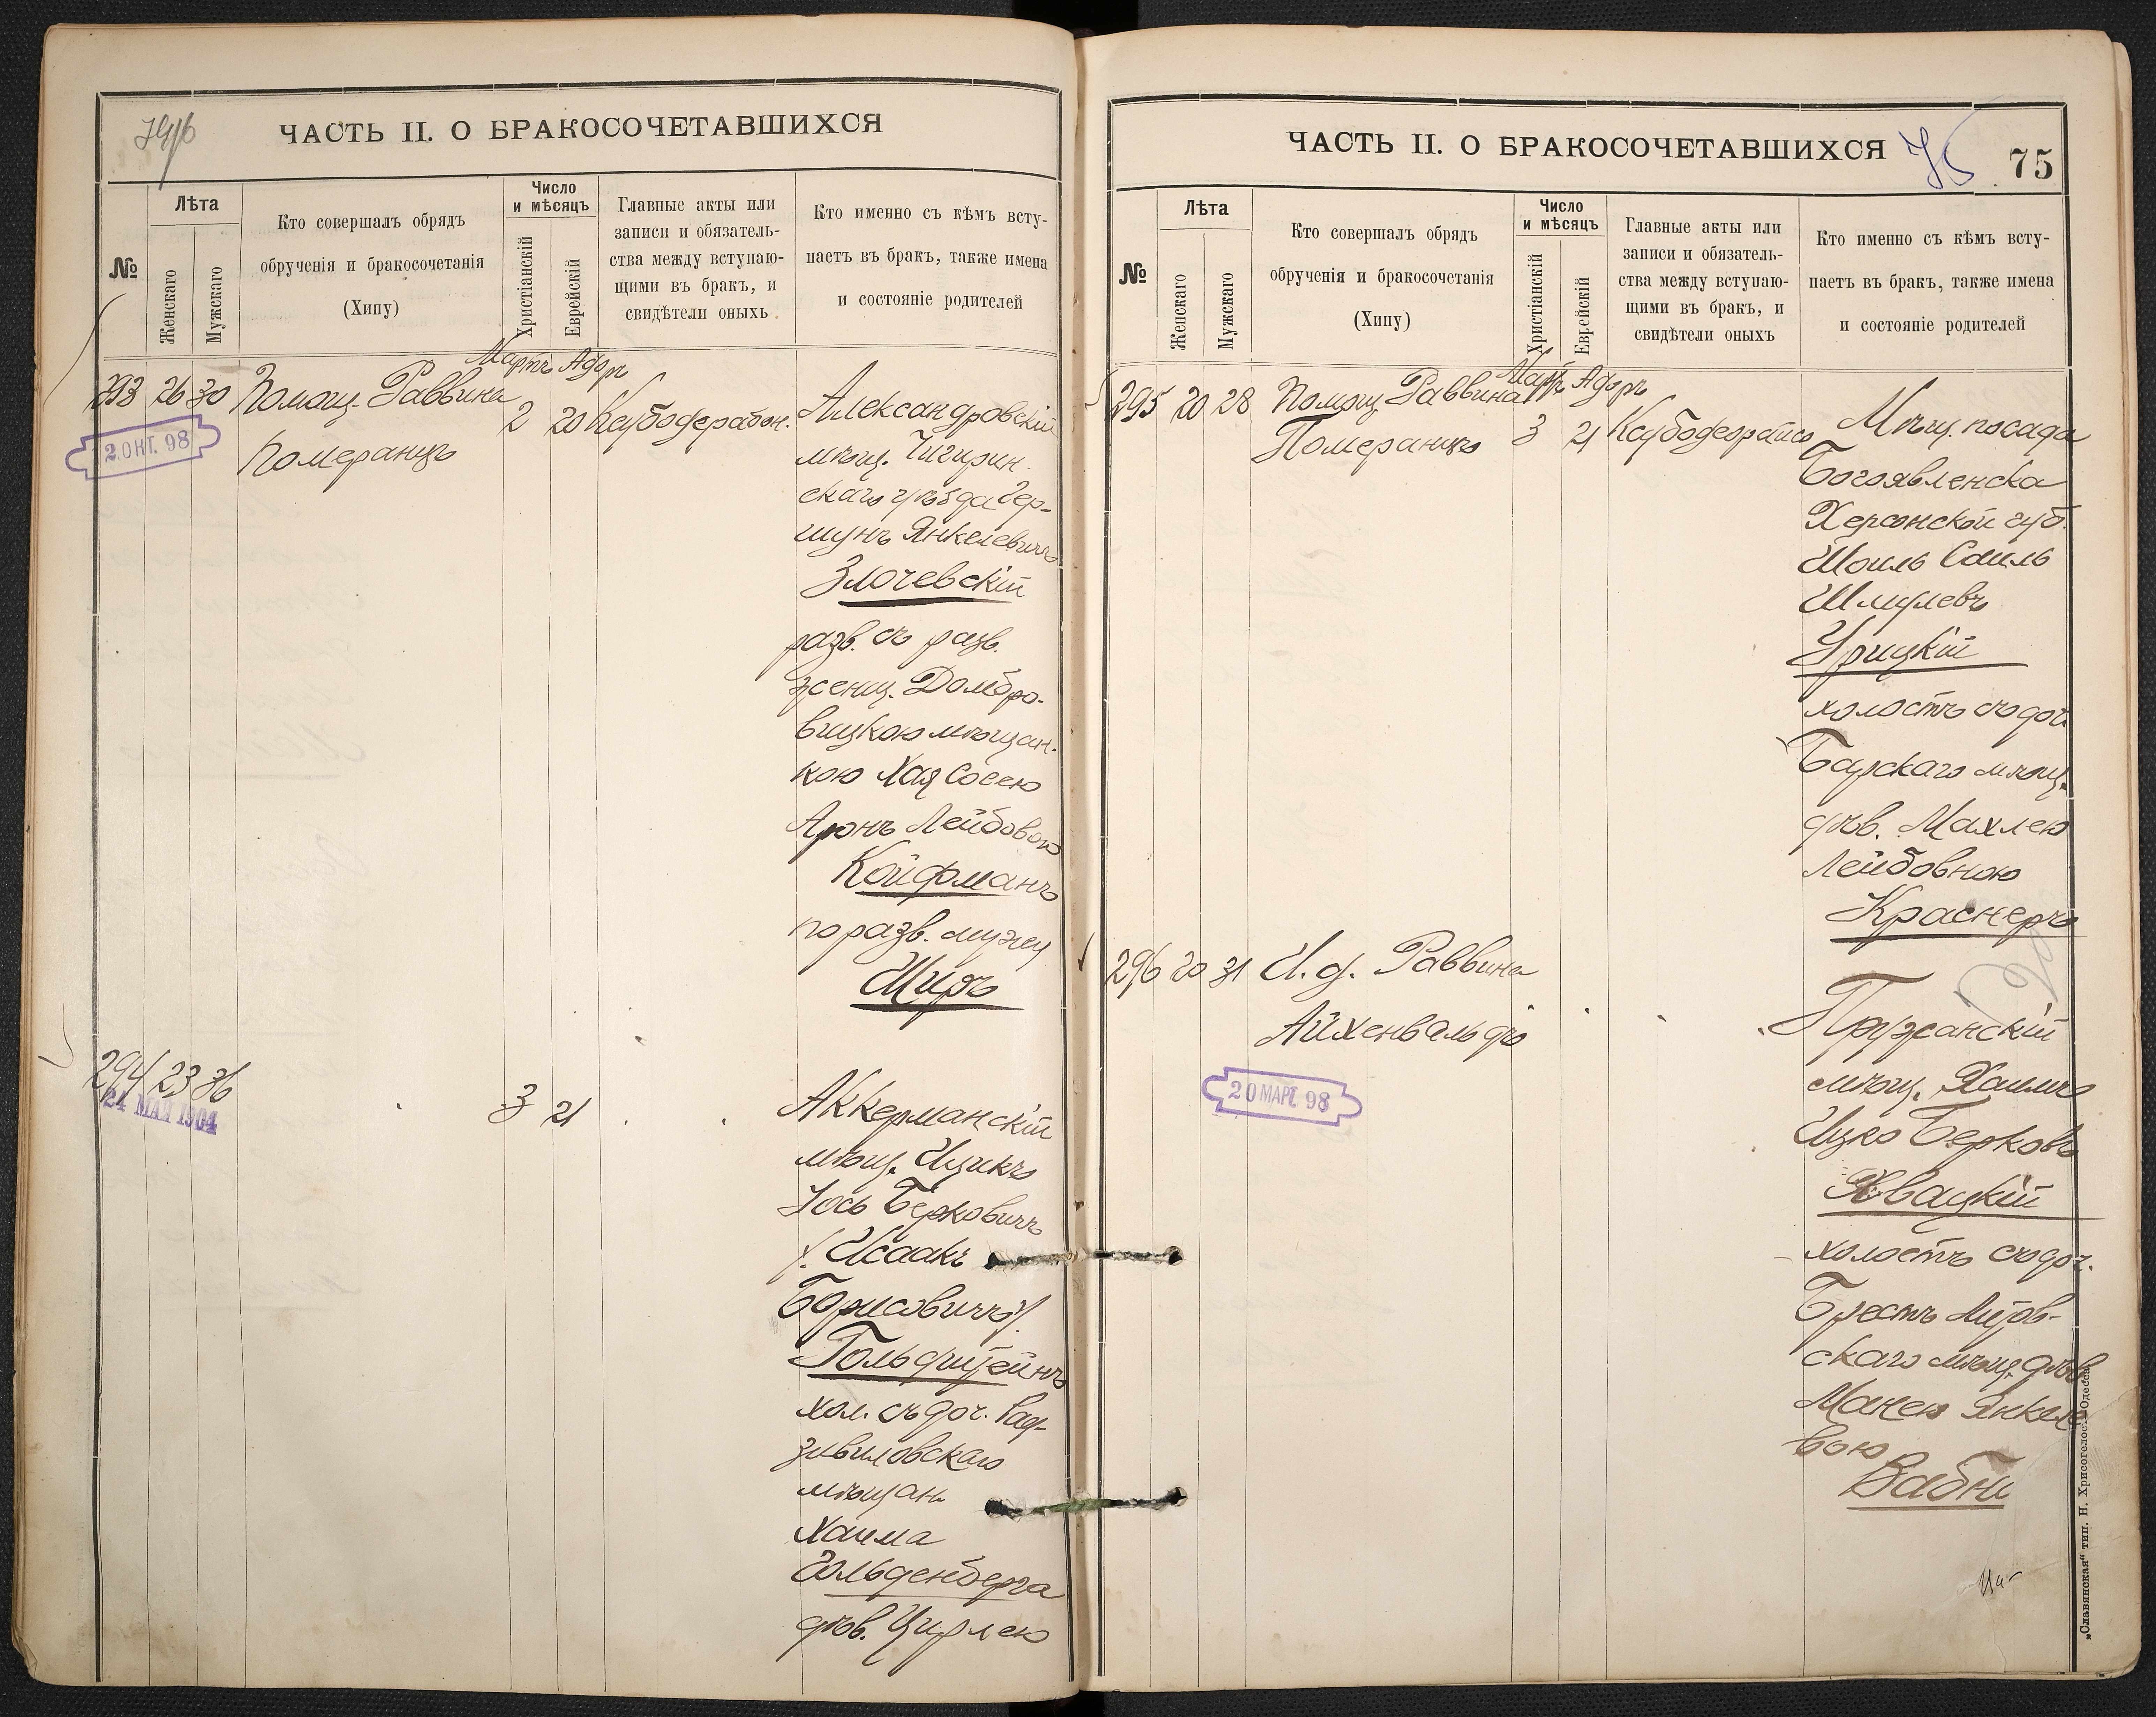 74/б
ЧАСТЬ II. О БРАКОСОЧЕТАВШИХСЯ
№
Лѣта
Женскаго
Мужскаго
Кто совершалъ обрядъ
обрученія и бракосочетанія
(Хипу)
Число
и мѣсяцъ
Христіанскій
Еврейскій
Главные акты или
записи и обязатель-
ства между вступаю-
щими въ бракъ, и
свидѣтели оныхъ
Кто именно съ кѣмъ всту-
паетъ въ бракъ, также имена
и состояніе родителей
293 26 30 Помощ. Раввина
Померанцъ
Мартъ Адоръ
2 20
2. ОКТ. 98
Александровскій
мѣщ. Чигирин-
скаго уѣзда Гер-
шунъ Янкелевичъ
Злочевскій
разв. съ разв.
женщ. Домбро-
вицкою мѣщан-
кою Хая Сосею
Аронъ Лейбовою
Койфманъ
по разв. мужу
Щиръ
294 23 36
24 МАЯ 1904
3 21
Аккерманскій
мѣщ. Ицикъ
Іось Берковичъ
/Исаакъ
Борисовичъ/
Гольдштейнъ
хол. съ доч. Рад-
зивиловскаго
мѣщан.
Хаима
Гольденберга
дѣв. Цирлею
ЧАСТЬ II. О БРАКОСОЧЕТАВШИХСЯ
75
75
№
Лѣта
Женскаго
Мужскаго
Кто совершалъ обрядъ
обрученія и бракосочетанія
(Хипу)
Число
и мѣсяцъ
Христіанскій
Еврейскій
Главные акты или
записи и обязатель-
ства между вступаю-
щими въ бракъ, и
свидѣтели оныхъ
Кто именно съ кѣмъ всту-
паетъ въ бракъ, также имена
и состояніе родителей
295 20 28 Помощ. Раввина
Померанцъ
Мартъ Адоръ
3 21
Мѣщ. посада
Богоявленска
Херсонской губ.
Шоиль Саиль
Шмулевъ
Урицкій
холостъ съ доч.
Барскаго мѣщ.
дѣв. Махлею
Лейбовною
Краснеръ
296 20 31 И. д. Раввина
Айхенвальдъ
20 МАРТ. 98
Пружанскій
мѣщ. Хаимъ
Ицко Берковъ
Хвацкій
холостъ съ доч.
Брестъ Литов-
скаго мѣщ. дѣв.
Манею Янкеле-
вою
„Славянская“ тип. Н. Хрисогелосъ. Одесса